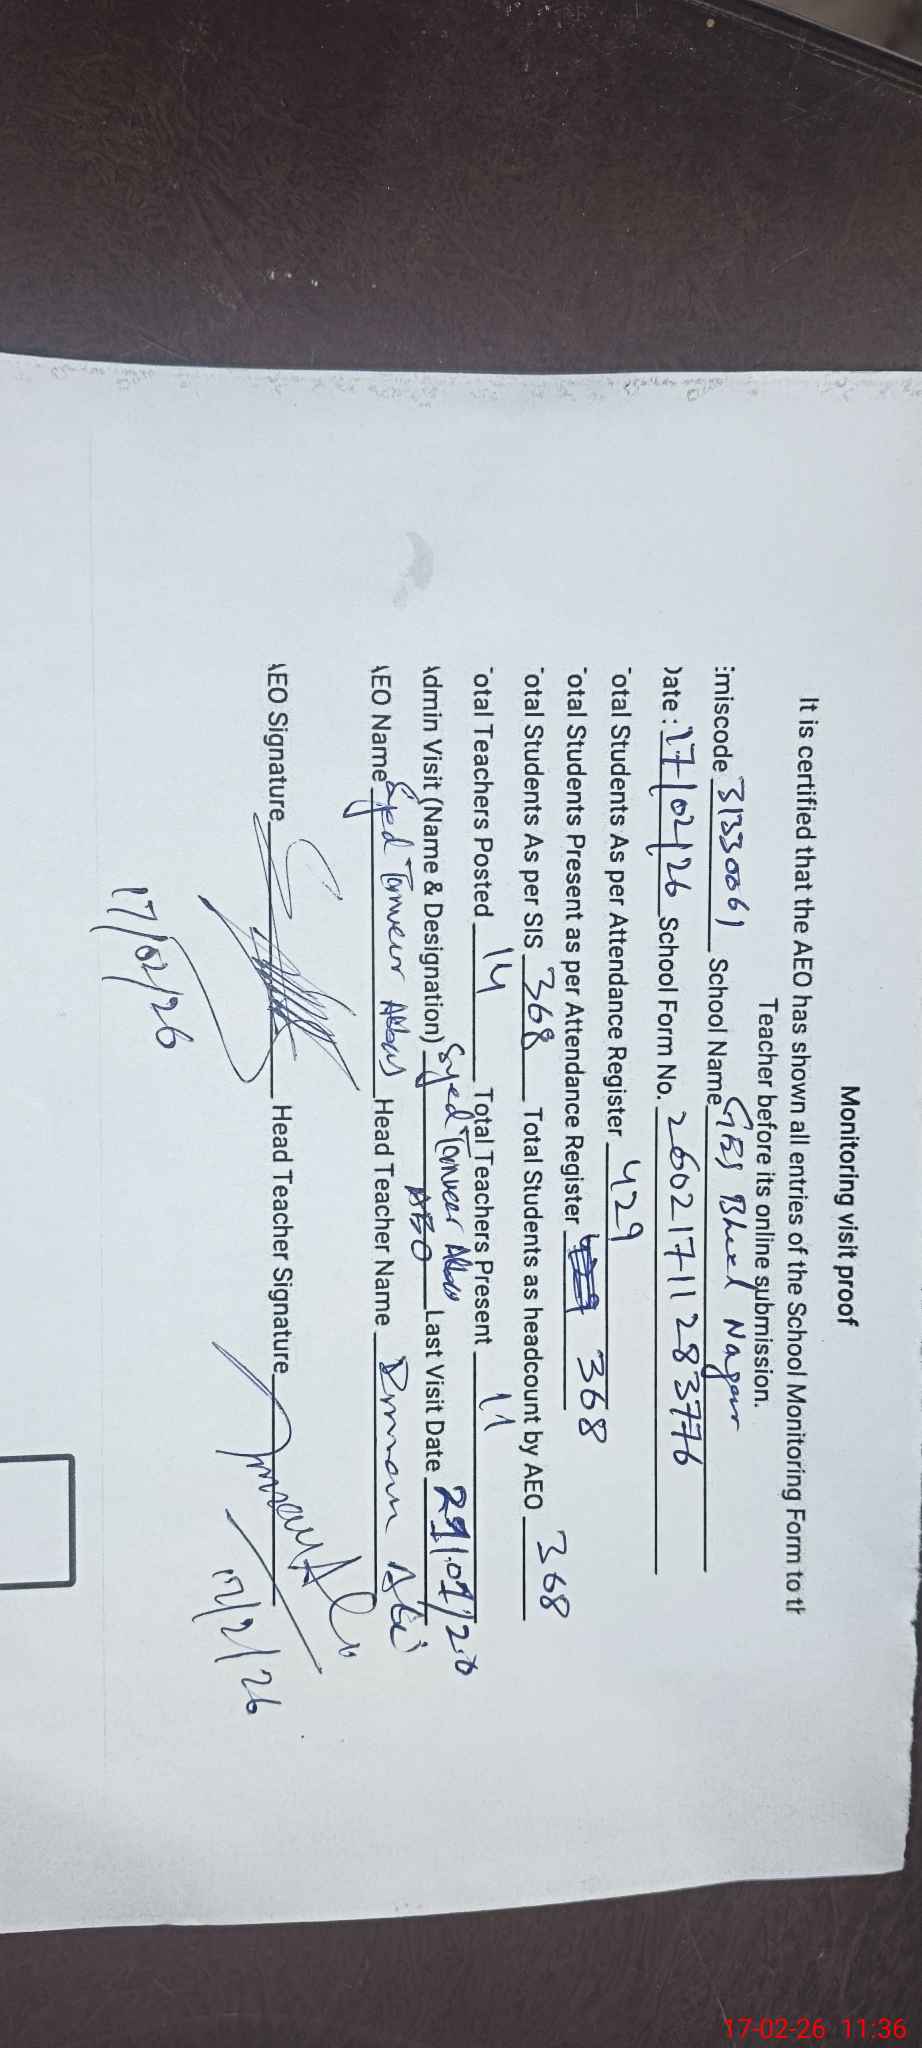 Monitoring visit proof
It is certified that the AEO has shown all entries of the School Monitoring Form to th
Teacher before its online submission.
Emiscode 31330061 School Name GES Bheel Nagar
Date : 17/02/26 School Form No. 26021711283776
Total Students As per Attendance Register 429
Total Students Present as per Attendance Register 368
Total Students As per SIS 368 Total Students as headcount by AEO 368
Total Teachers Posted 14 Total Teachers Present 11
Admin Visit (Name & Designation) Syed Tanveer Abbas AEO Last Visit Date
AEO Name Syed Tanveer Abbas Head Teacher Name
AEO Signature Head Teacher Signature
17/02/26
17/2/26
17-02-26 11:36